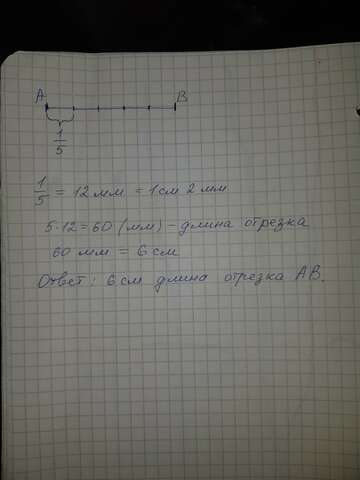 A B
1/5
1/5 = 12 мм = 1 см 2 мм
5·12=60 (мм) - длина отрезка
60 мм = 6 см
Ответ: 6 см длина отрезка AB.